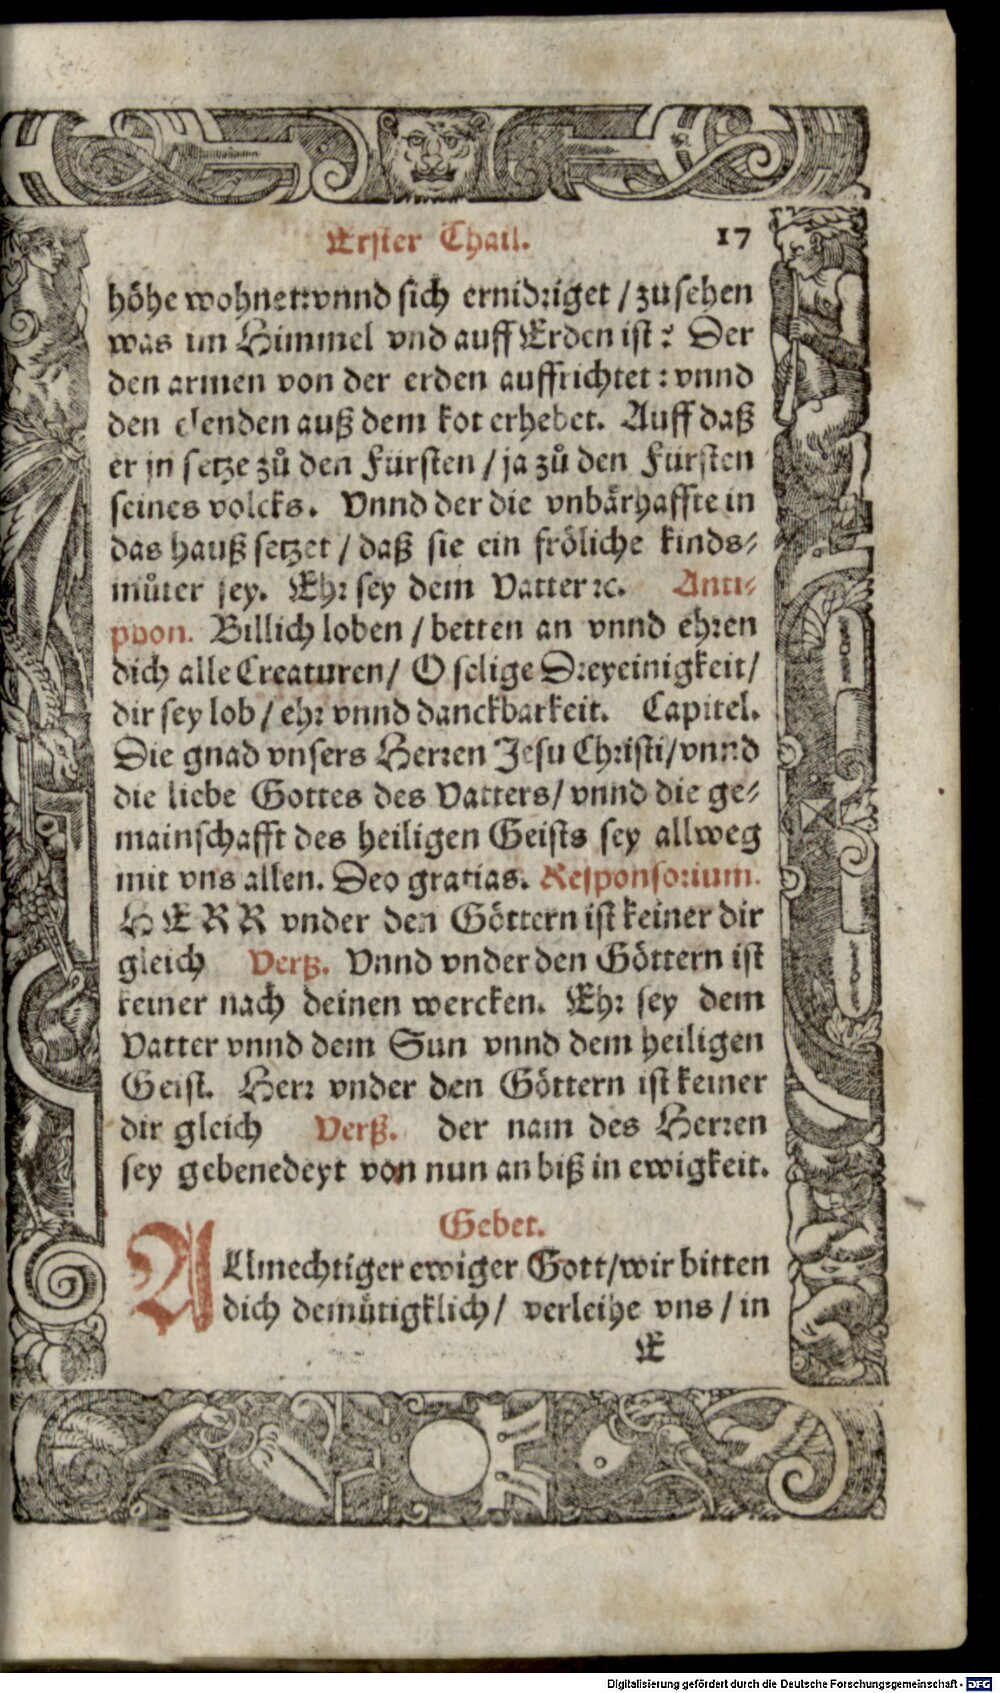 Erster Thail. 17
höhe wohnet: vnnd sich ernidriget / zu sehen
was im Himmel vnd auff Erden ist? Der
den armen von der erden auffrichtet: vnnd
den elenden auß dem kot erhebet. Auff daß
er jn setze zů den Fürsten / ja zů den Fürsten
seines volcks. Vnnd der die vnbärhaffte in
das hauß setzet / daß sie ein fröliche kinds⸗
můter sey. Ehr sey dem Vatter ꝛc. Anti⸗
phon. Billich loben / betten an vnnd ehren
dich alle Creaturen / O selige Dreyeinigkeit /
dir sey lob / ehr vnnd danckbarkeit. Capitel.
Die gnad vnsers Herren Jesu Christi / vnnd
die liebe Gottes des Vatters / vnnd die ge⸗
mainschafft des heiligen Geists sey allweg
mit vns allen. Deo gratias. Responsorium.
HERR vnder den Göttern ist keiner dir
gleich Verß. Vnnd vnder den Göttern ist
keiner nach deinen wercken. Ehr sey dem
Vatter vnnd dem Sun vnnd dem heiligen
Geist. Herr vnder den Göttern ist keiner
dir gleich Verß. der nam des Herren
sey gebenedeyt von nun an biß in ewigkeit.
Gebet.
Allmechtiger ewiger Gott / wir bitten
dich demütigklich / verleihe vns / in
E
Digitalisierung gefördert durch die Deutsche Forschungsgemeinschaft - DFG